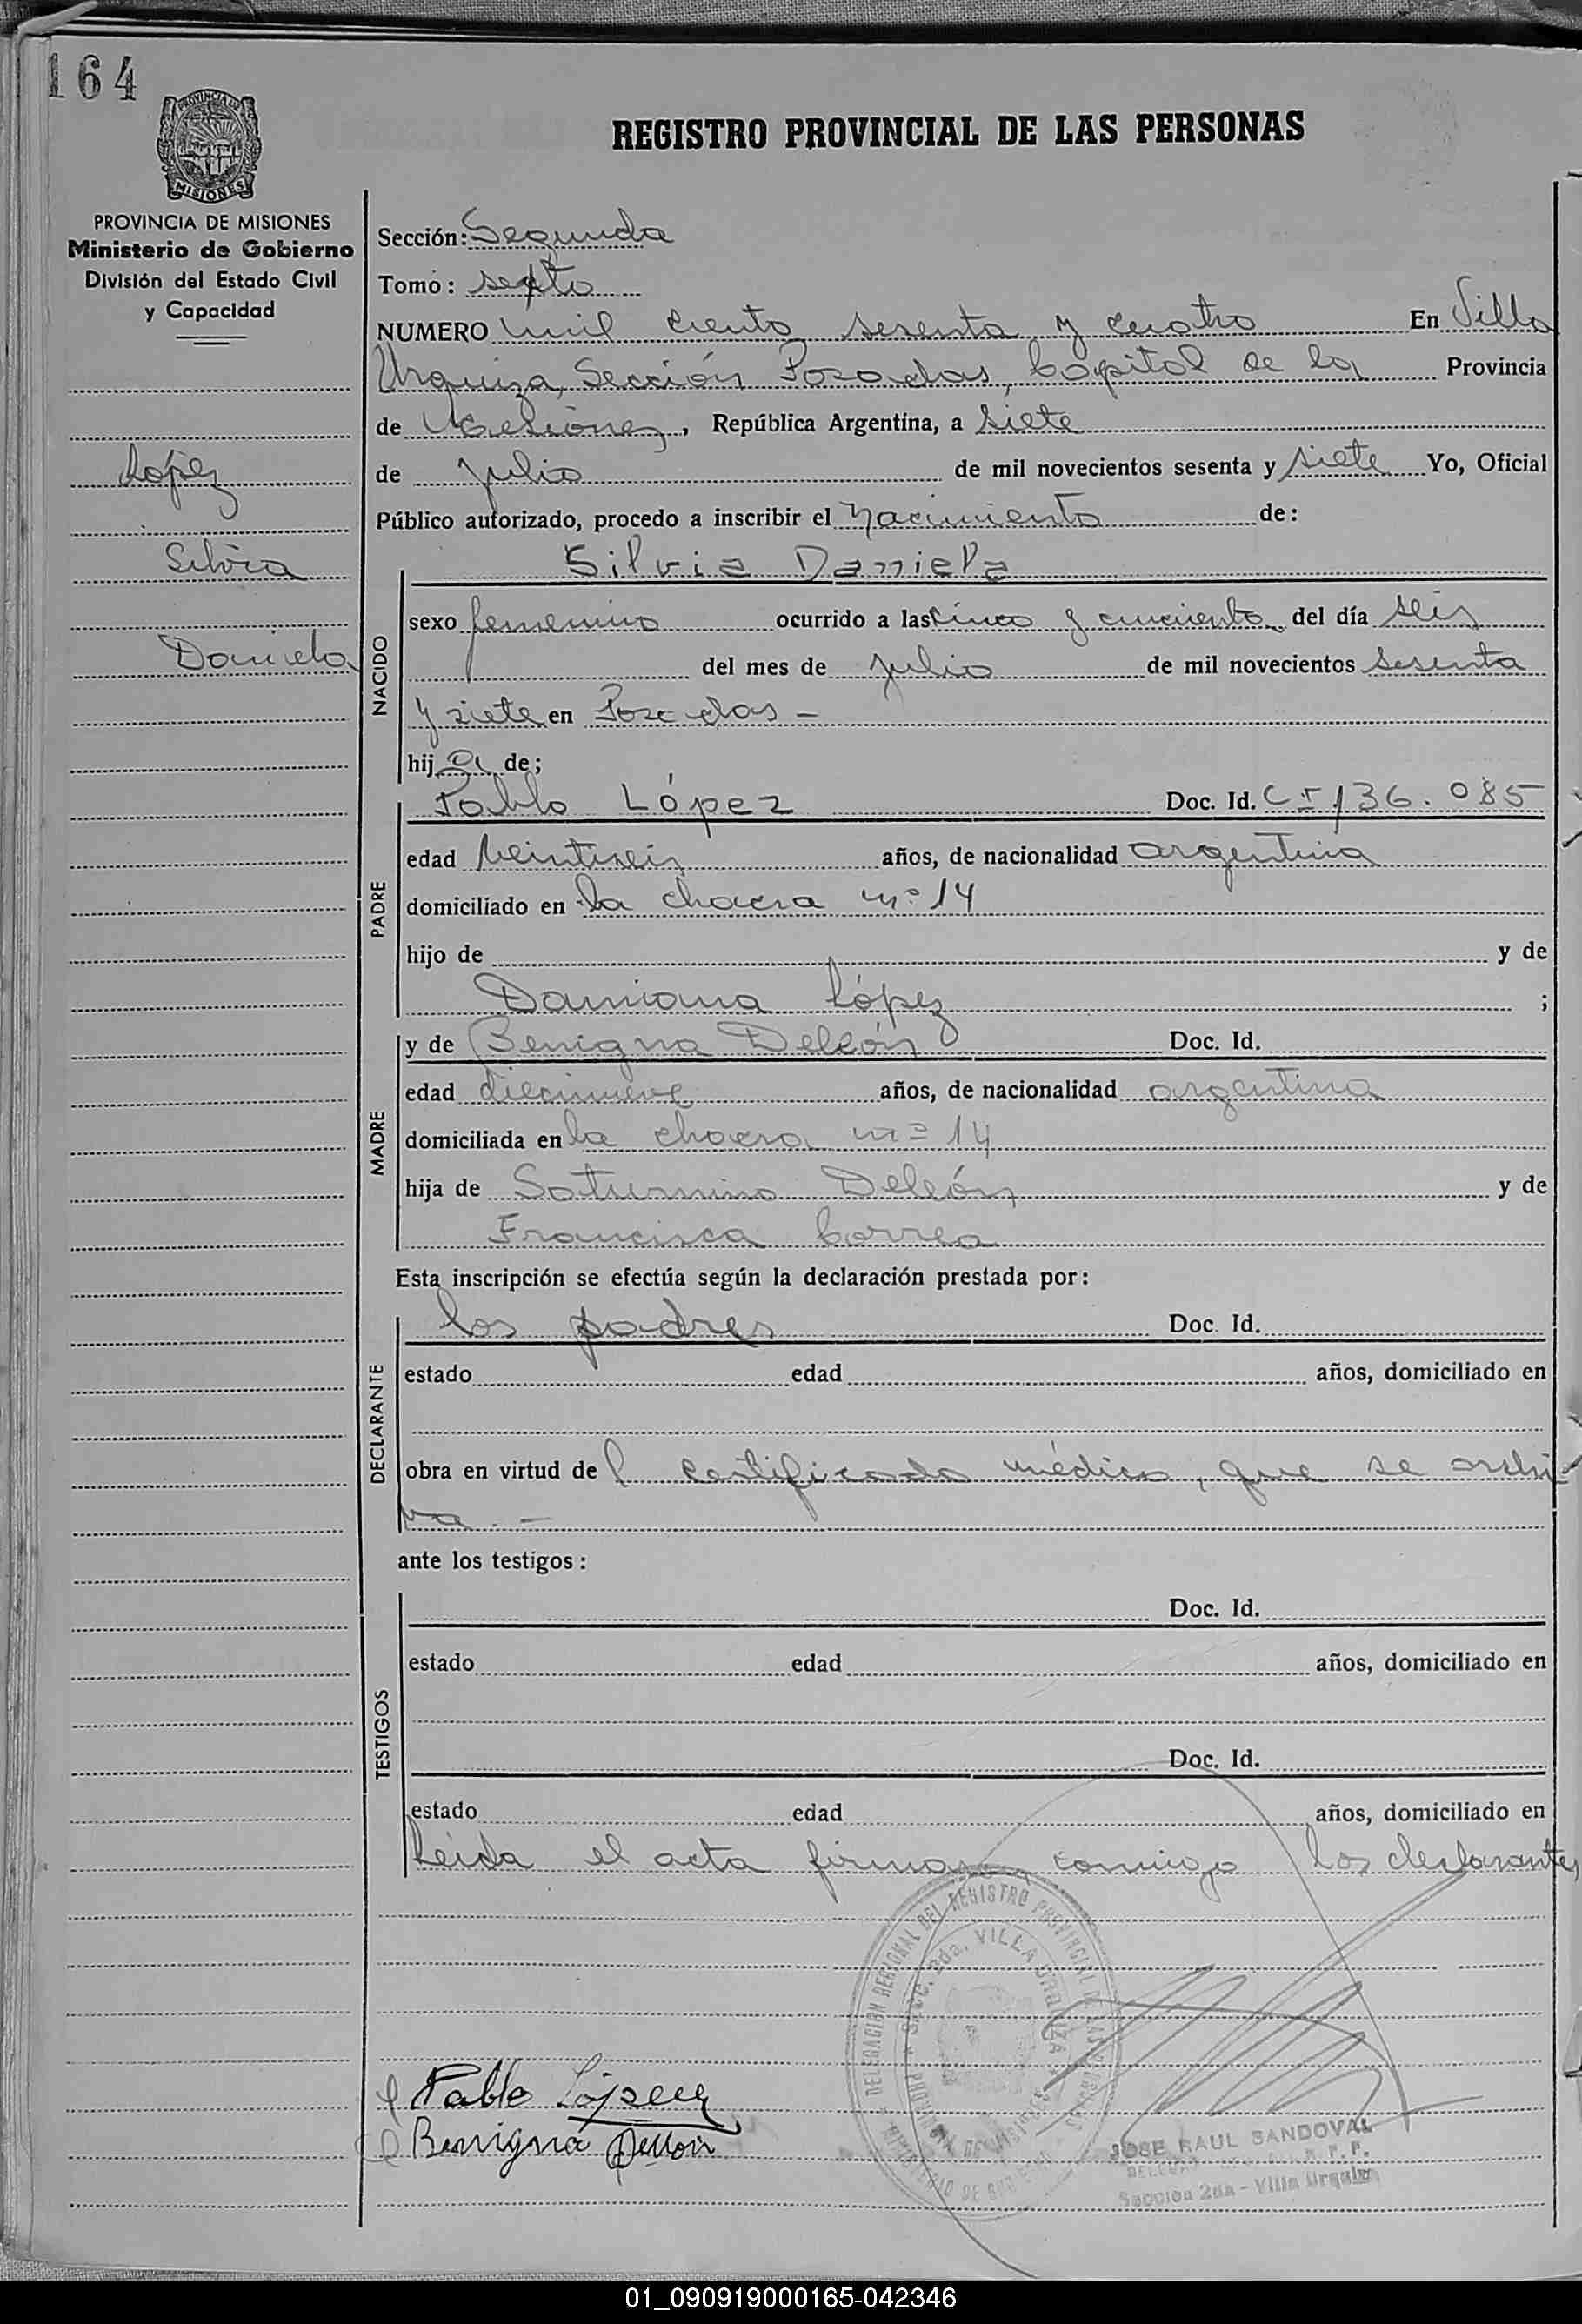 164
PROVINCIA DE MISIONES
Ministerio de Gobierno
División del Estado Civil
y Capacidad
López
Silvia
Daniela
REGISTRO PROVINCIAL DE LAS PERSONAS
Sección: Segunda
Tomo: sexto
NUMERO mil ciento sesenta y cuatro En Villa
Urquiza, Sección Posadas, Capital de la Provincia
de Misiones, República Argentina, a siete
de julio de mil novecientos sesenta y siete Yo, Oficial
Público autorizado, procedo a inscribir el nacimiento de:
Silvia Daniela
NACIDO
sexo femenino ocurrido a las cinco y cincuenta del día seis
del mes de julio de mil novecientos sesenta
y siete en Posadas -
hija de;
PADRE
Pablo López Doc. Id. CI 136.085
edad veintiseis años, de nacionalidad argentina
domiciliado en la chacra nº 14
hijo de y de
Damiana López ;
MADRE
y de Benigna Deleón Doc. Id.
edad diecinueve años, de nacionalidad argentina
domiciliada en la chacra nº 14
hija de Saturnino Deleón y de
Francisca Correa
Esta inscripción se efectúa según la declaración prestada por:
DECLARANTE
los padres Doc. Id.
estado edad años, domiciliado en
obra en virtud del certificado médico, que se archi-
va. -
ante los testigos:
TESTIGOS
Doc. Id.
estado edad años, domiciliado en
Doc. Id.
estado edad años, domiciliado en
Leida el acta firman conmigo los declarantes
DELEGACION REGIONAL DEL REGISTRO PROVINCIAL DE LAS PERSONAS
Secc. 2da. VILLA URQUIZA
PROVINCIA DE MISIONES
MINISTERIO DE GOBIERNO
Pablo López
Benigna Delleon
JOSE RAUL SANDOVAL
Sección 2da - Villa Urquiza
01_090919000165-042346